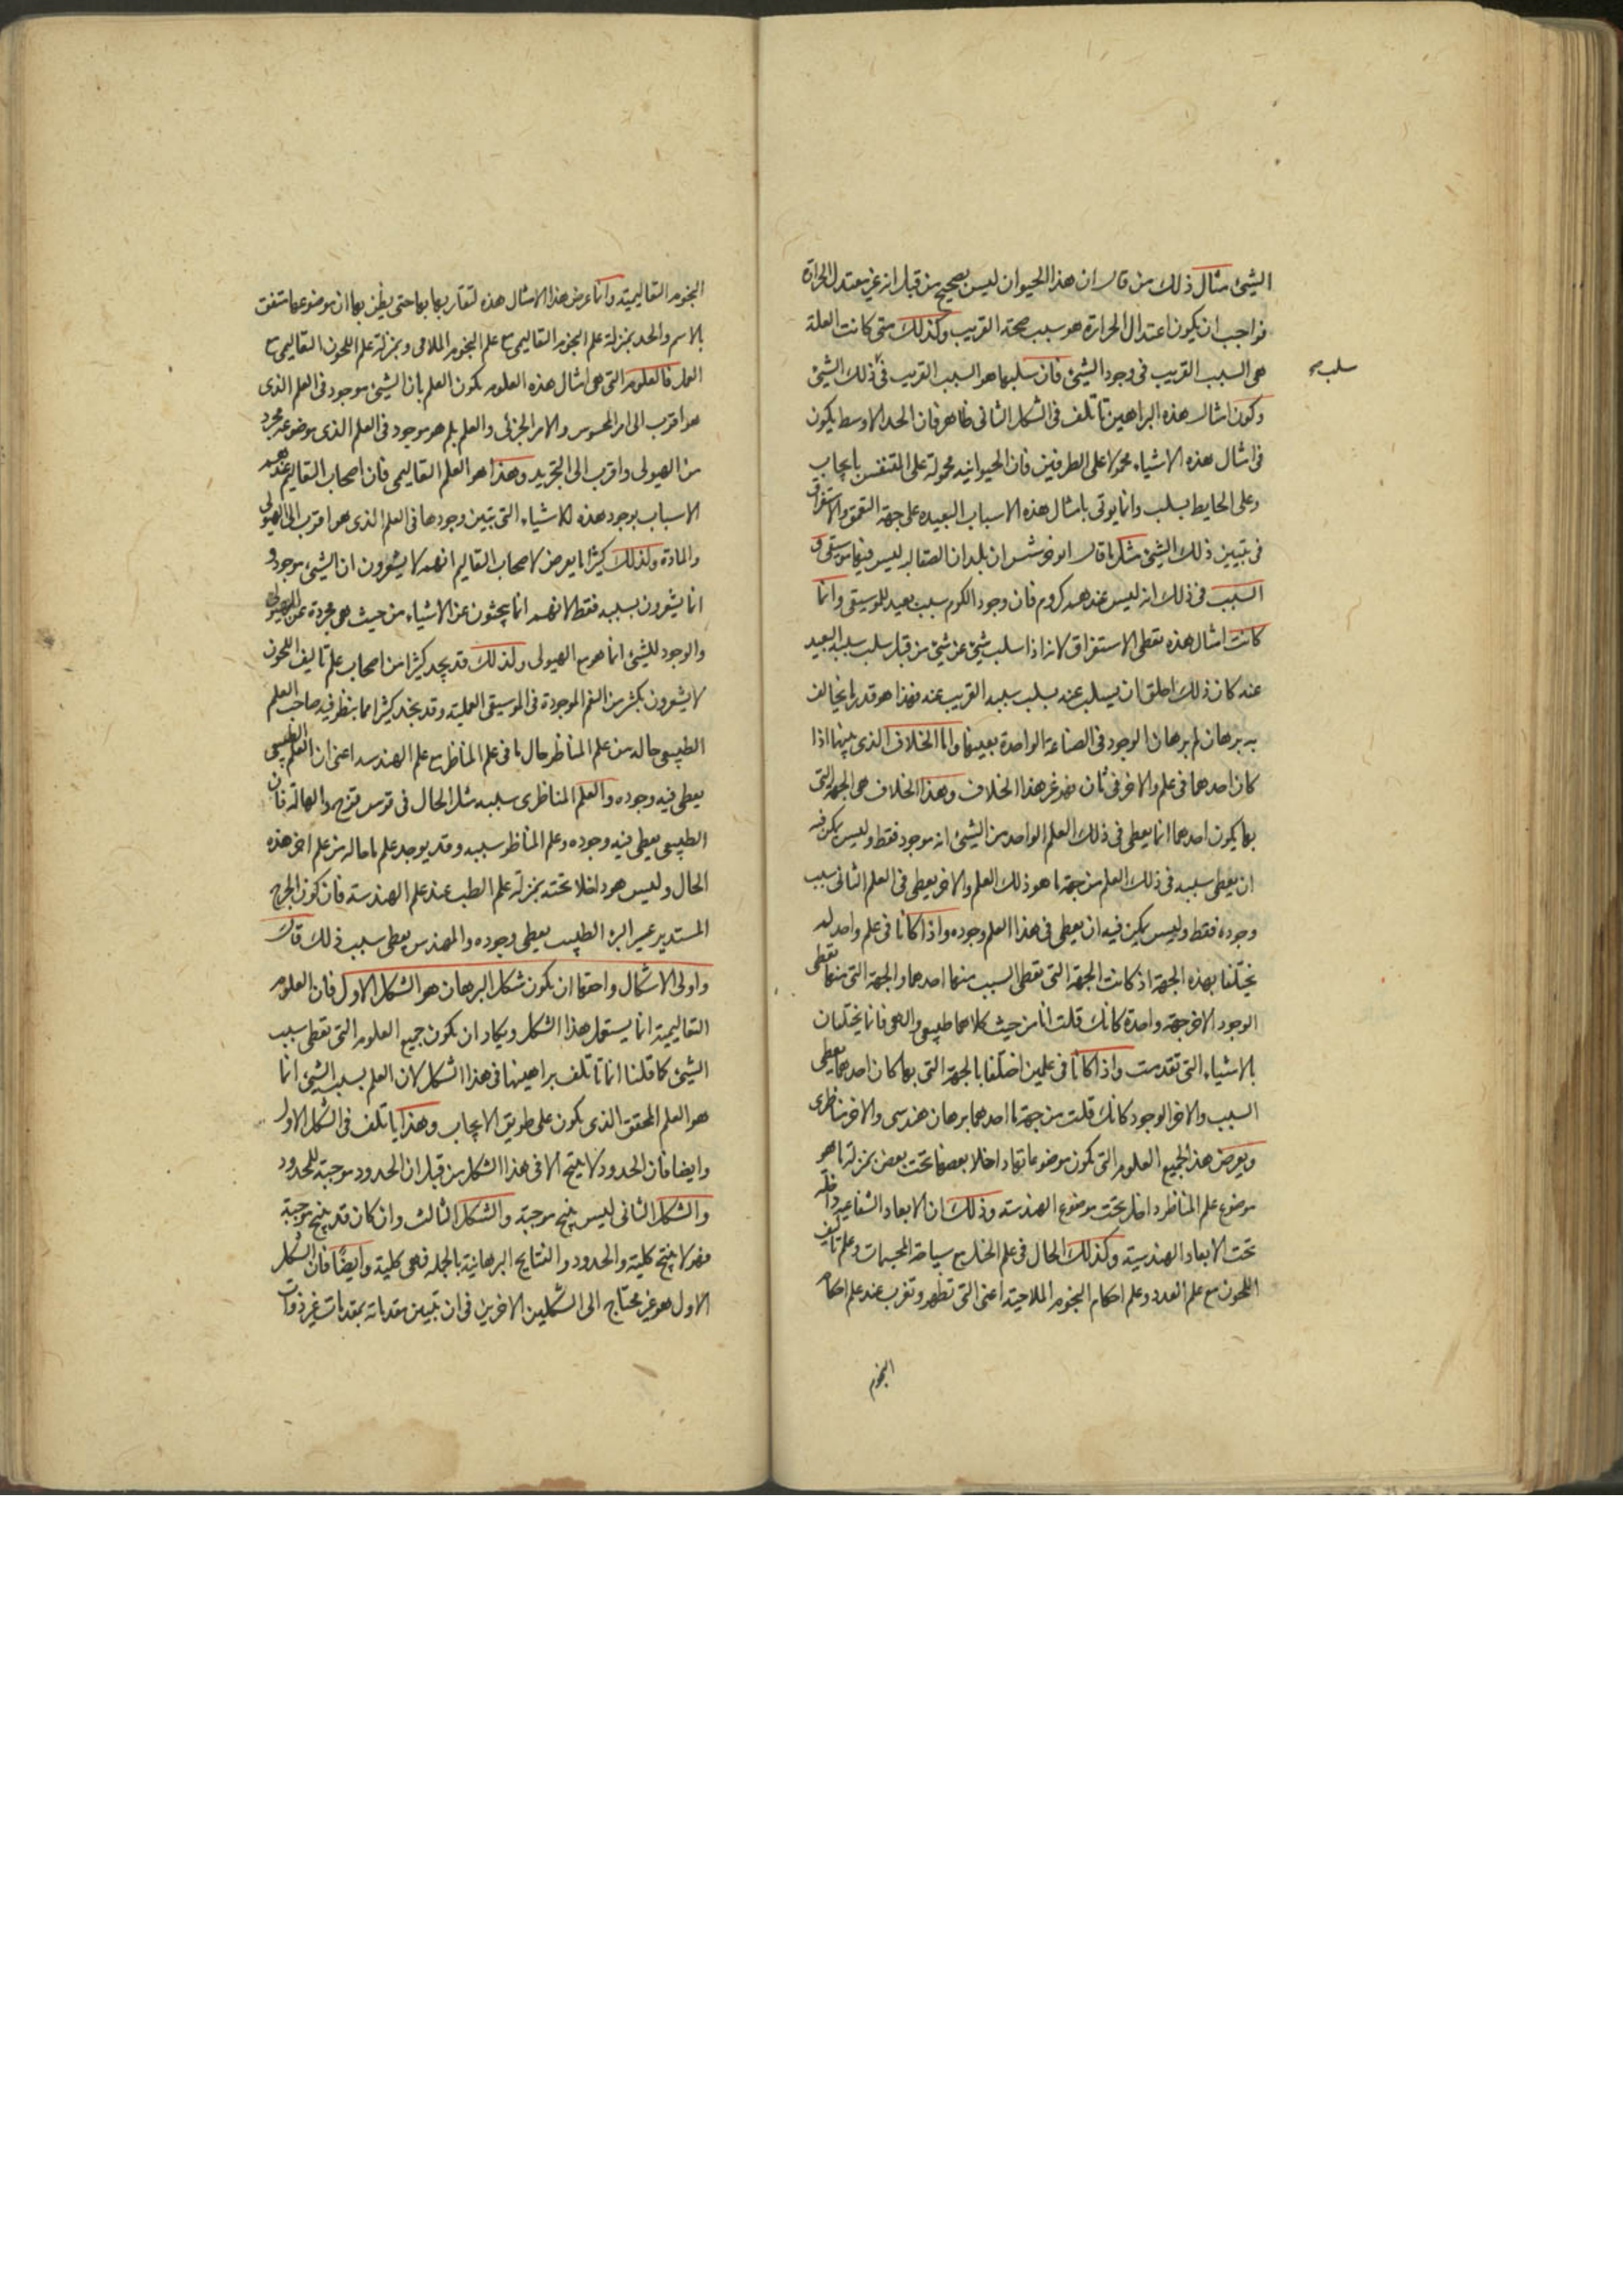 الشيئ مثال ذلك من قال ان هذا الحيوان ليس بصحيح من قبل انه غير معتدل الحرارة
فواجب ان يكون اعتدال الحرارة هو سبب صحته القريب وكذلك متى كانت العلة
هى السبب القريب فى وجود الشيئ فان سلبها هو السبب القريب فى ذلك الشيئ
سلب
وكون امثال هذه البراهين تاتلف فى الشكل الثانى ظاهر فان الحد الاوسط يكون
فى امثال هذه الاشياء محمولا على الطرفين فان الحيوانيه محمولة على المتنفس بايجاب
وعلى الحايط بسلب وانما يوتى بامثال هذه الاسباب البعيده على جهة التعمق والاستغراق
فى تبيين ذلك الشيئ مثل ما قال ابوخرشس ان بلدان الصقالبه ليس فيها موسيقى و
السبب فى ذلك انه ليس عندهم كروم فان وجود الكروم سبب بعيد للموسيقى وانما
كانت امثال هذه تعطى الاستغراق لانه اذا سلب شيئ عن شيئ من قبل سلب سببه البعيد
عنه كان ذلك اخلق ان يسلب عنه بسلب سببه القريب عنه فهذا هو قدر ما يخالف
به برهان لم برهان الوجود فى الصناعة الواحدة بعينها واما الخلاف الذى بينهما اذا
كان احدهما فى علم والاخر فى ثان فهو غير هذا الخلاف وهذا الخلاف هى الجهة التى
بها يكون احدهما انما يعطى فى ذلك العلم الواحد من الشيئ انه موجود فقط وليس يمكن فيه
ان يعطى سببه فى ذلك العلم من جهة ما هو ذلك العلم والاخر يعطى فى العلم الثانى سبب
وجوده فقط وليس يمكن فيه ان يعطى فى هذا العلم وجوده واذا كانا فى علم واحد لم
يختلفا بهذه الجهة اذ كانت الجهة التى تعطى السبب منهما احدهما والجهة التى منها تعطى
الوجود الاخر جهة واحدة كانك قلت انا من حيث كلاهما طبيعى والهى فانما يختلفان
بالاشياء التى تقدمت واذا كانا فى علمين اختلفا بالجهة التى بها كان احدهما يعطى
السبب والاخر الوجود كانك قلت من جهة ما احدهما برهان هندسى والاخر مناظرى
ويعرض هذا لجميع العلوم التى يكون موضوعاتها داخلا بعضها تحت بعض بمنزلة ما هو
موضوع علم المناظر داخل تحت موضوع الهندسة وذلك ان الابعاد الشعاعيه داخله
تحت الابعاد الهندسية وكذلك الحال فى علم الحيل مع مساحة المجسمات وعلم تاليف
اللحون مع علم العدد وعلم احكام النجوم الملاحية اعنى التى تظهر وتغرب عند علم احكام
النجوم
النجوم التعاليمية وانما عرض هذا الامثال هذه لتقاربها بها حتى يظن بها ان موضوعها متفق
بالاسم والحد بمنزلة علم النجوم التعاليمى مع علم النجوم الملاحى وبمنزلة علم اللحون التعاليمى مع
العمل فالعلوم التى هى امثال هذه العلوم يكون العلم بان الشيئ موجود فى العلم الذى
هو اقرب الى الامر المحسوس والامر الجزئى والعلم بلم هو موجود فى العلم الذى موضوعه مجرد
من الهيولى واقرب الى التجريد وهذا هو العلم التعاليمى فان اصحاب التعاليم عندهم
الاسباب بوجود هذه الاشياء التى يتبين وجودها فى العلم الذى هو اقرب الى الهيولى
والمادة ولذلك كثيرا ما يعرض لاصحاب التعاليم انهم لا يشعرون ان الشيئ موجود و
انما يشعرون بسببه فقط لانهم انما يبحثون عن الاشياء من حيث هى مجردة عن الهيولى
والوجود للشيئ انما هو مع الهيولى ولذلك قد يجد كثيرا من اصحاب علم تاليف اللحون
لا يشعرون بكثير من النغم الموجودة فى الموسيقى العملية وقد يجد كثيرا مما ينظر فيه صاحب العلم
الطبيعى حاله من علم المناظر حال ما فى علم المناظر مع علم الهندسه اعنى ان العلم الطبيعى
يعطى فيه وجوده والعلم المناظرى سببه مثل الحال فى قوس قزح والهالة فان
الطبيعى يعطى فيه وجوده وعلم المناظر سببه وقد يوجد علم ما حاله من علم اخر هذه
الحال وليس هو داخلا تحته بمنزلة علم الطب عند علم الهندسة فان كون الجرح
المستدير عسير البرء الطبيب يعطى وجوده والمهندس يعطى سبب ذلك قال
واولى الاشكال واحقها ان يكون شكل البرهان هو الشكل الاول فان العلوم
التعاليمية انما يستعمل هذا الشكل ويكاد ان يكون جميع العلوم التى تعطى سبب
الشيئ كما قلنا انما تاتلف براهينها فى هذا الشكل لان العلم بسبب الشيئ انما
هو العلم المحقق الذى يكون على طريق الايجاب وهذا ياتلف فى الشكل الاول
وايضا فان الحدود لا ينتج الا فى هذا الشكل من قبل ان الحدود موجبة للمحدود
والشكل الثانى ليس ينتج موجبة والشكل الثالث وان كان قد ينتج موجبة
فهو لا ينتج كلية والحدود والنتايج البرهانية بالجمله فهى كلية وايضا فان الشكل
الاول هو غير محتاج الى الشكلين الاخرين فى ان تبيين مقدماته بمقدمات غير ذوات